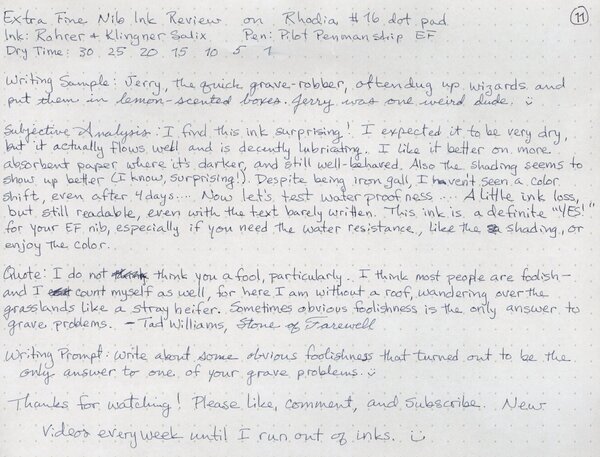 Extra Fine Nib Ink Review on Rhodia #16 dot pad
11
Ink: Rohrer & Klingner Salix Pen: Pilot Penmanship EF
Dry Time: 30 25 20 15 10 5 1
Writing Sample: Jerry, the quick grave-robber, often dug up wizards and
put them in lemon-scented boxes. Jerry was one weird dude. :)
Subjective Analysis: I find this ink surprising! I expected it to be very dry,
but it actually flows well and is decently lubricating. I like it better on more
absorbent paper where it's darker, and still well-behaved. Also the shading seems to
show up better (I know, surprising!). Despite being iron gall, I haven't seen a color
shift, even after 4 days.... Now let's test waterproofness.... A little ink loss,
but still readable, even with the text barely written. This ink is a definite "YES!"
for your EF nib, especially if you need the water resistance, like the shading, or
enjoy the color.
Quote: I do not think you a fool, particularly. I think most people are foolish—
and I count myself as well, for here I am without a roof, wandering over the
grasslands like a stray heifer. Sometimes obvious foolishness is the only answer to
grave problems. — Tad Williams, Stone of Farewell
Writing Prompt: Write about some obvious foolishness that turned out to be the
only answer to one of your grave problems. :)
Thanks for watching! Please like, comment, and subscribe. New
videos every week until I run out of inks. :)